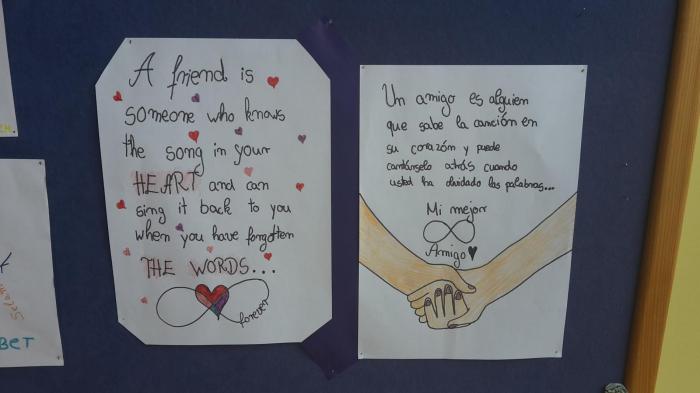 A friend is
someone who knows
the song in your
HEART and can
sing it back to you
when you have forgotten
THE WORDS...
forever
Un amigo es alguien
que sabe la canción en
su corazón y puede
cantárselo atrás cuando
usted ha olvidado las palabras...
Mi mejor
Amigo
BET